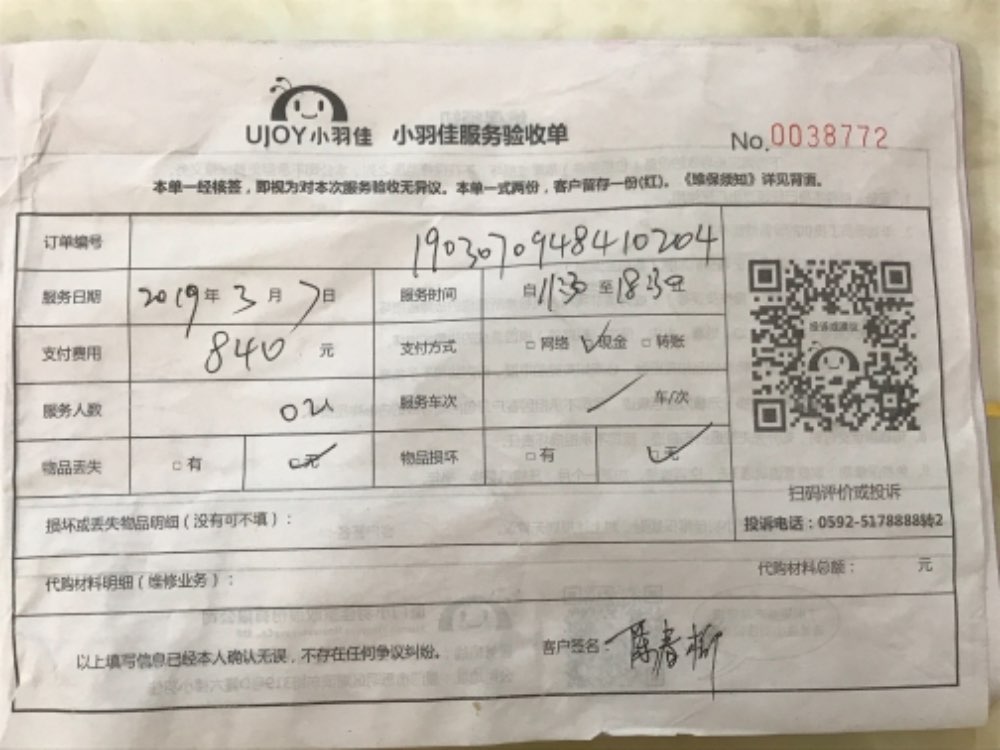 UJOY小羽佳 小羽佳服务验收单 No.0038772
本单一经接签，即视为对本次服务验收无异议。本单一式两份，客户留存一份(红)。《维保须知》详见背面。
订单编号 1903070948410204
服务日期 2019年3月7日 服务时间 自11:30至18:30
支付费用 840元 支付方式 □网络 ☑现金 □转账
服务人数 02人 服务车次 / 车/次
物品丢失 □有 ☑无 物品损坏 □有 ☑无
投诉或建议
扫码评价或投诉
投诉电话：0592-5178888转2
损坏或丢失物品明细（没有可不填）：
代购材料明细（维修业务）： 代购材料总额： 元
以上填写信息已经本人确认无误，不存在任何争议纠纷。 客户签名：陈春柳